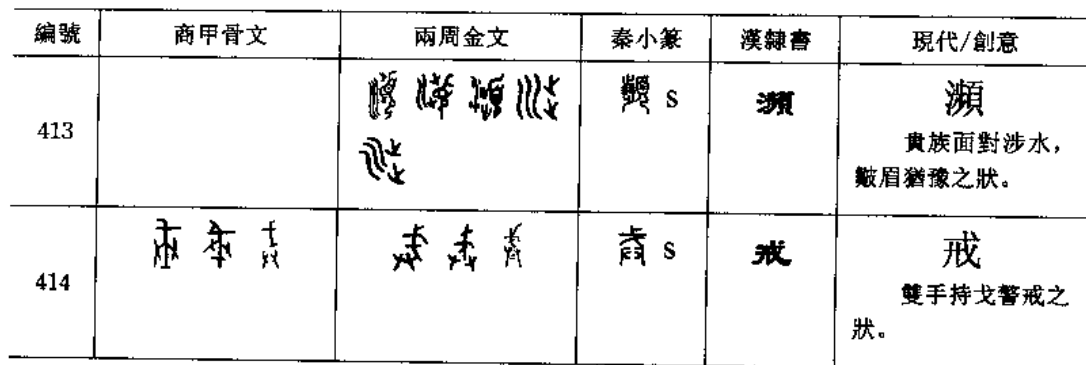 編號 商甲骨文 兩周金文 秦小篆 漢隸書 現代/創意
413 s 瀕 瀕
貴族面對涉水，
皺眉猶豫之狀。
414 s 戒 戒
雙手持戈警戒之
狀。